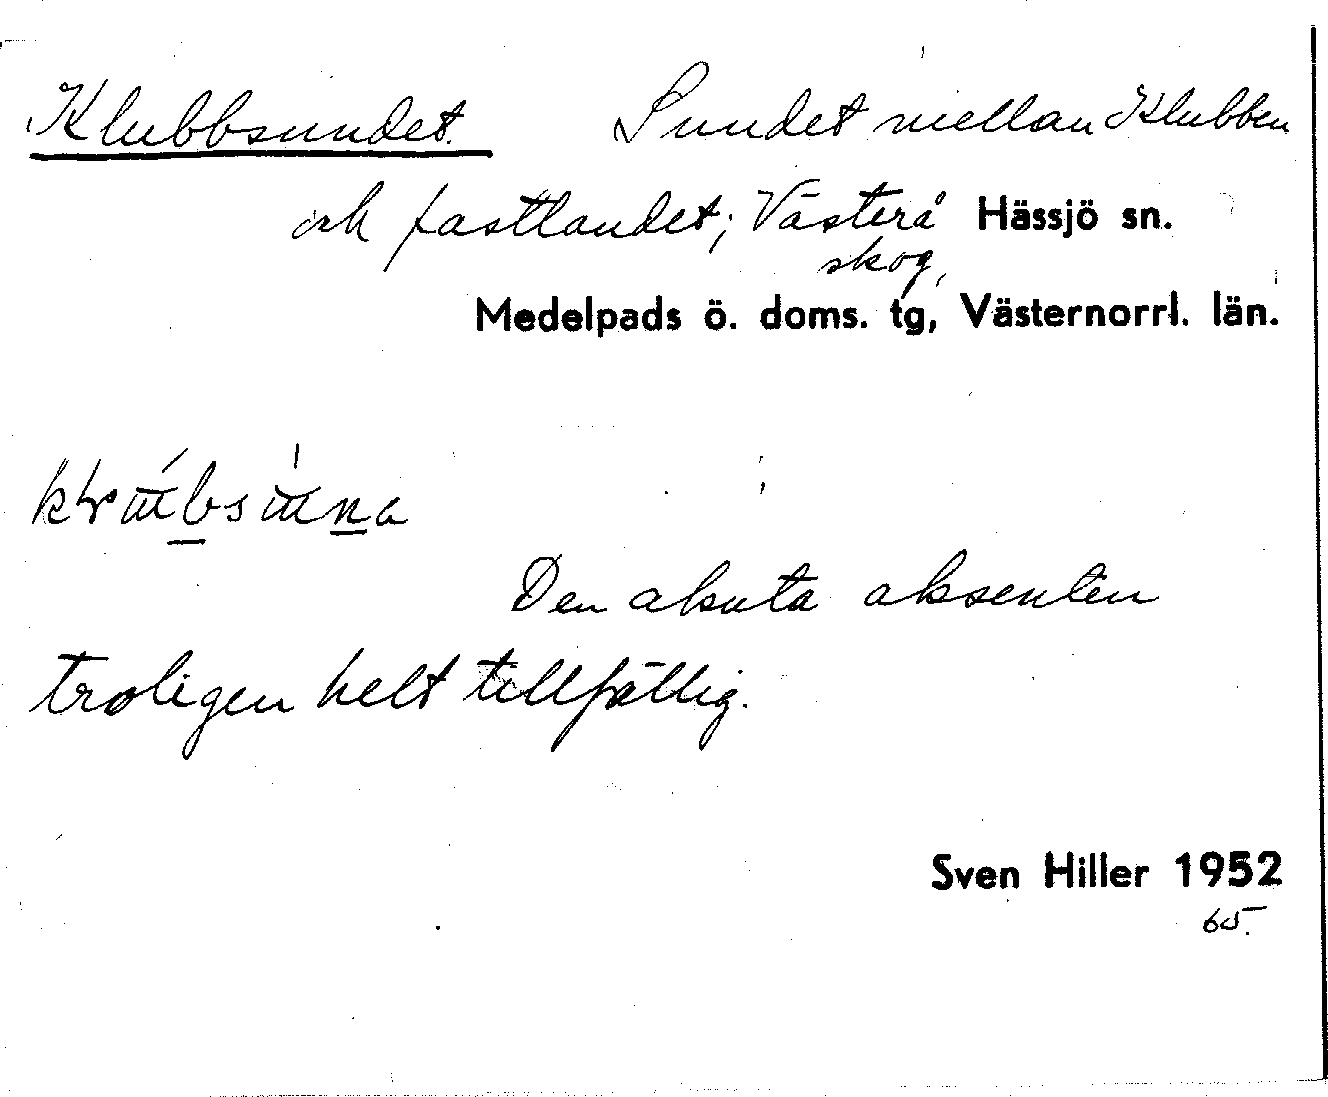 Klubbsundet. Sundet mellan Klubben
och fastlandet; Västerå Hässjö sn.
skog,
Medelpads ö. doms. tg, Västernorrl. län.
Den akuta aksenten
troligen helt tillfällig.
Sven Hiller 1952
65.